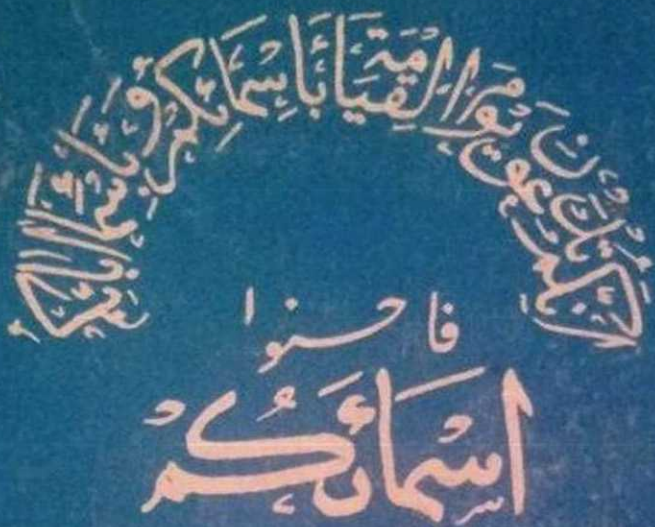 إنكم تدعون يوم القيامة بأسمائكم وبأسماء آبائكم
فاحسنوا
اسمائكم